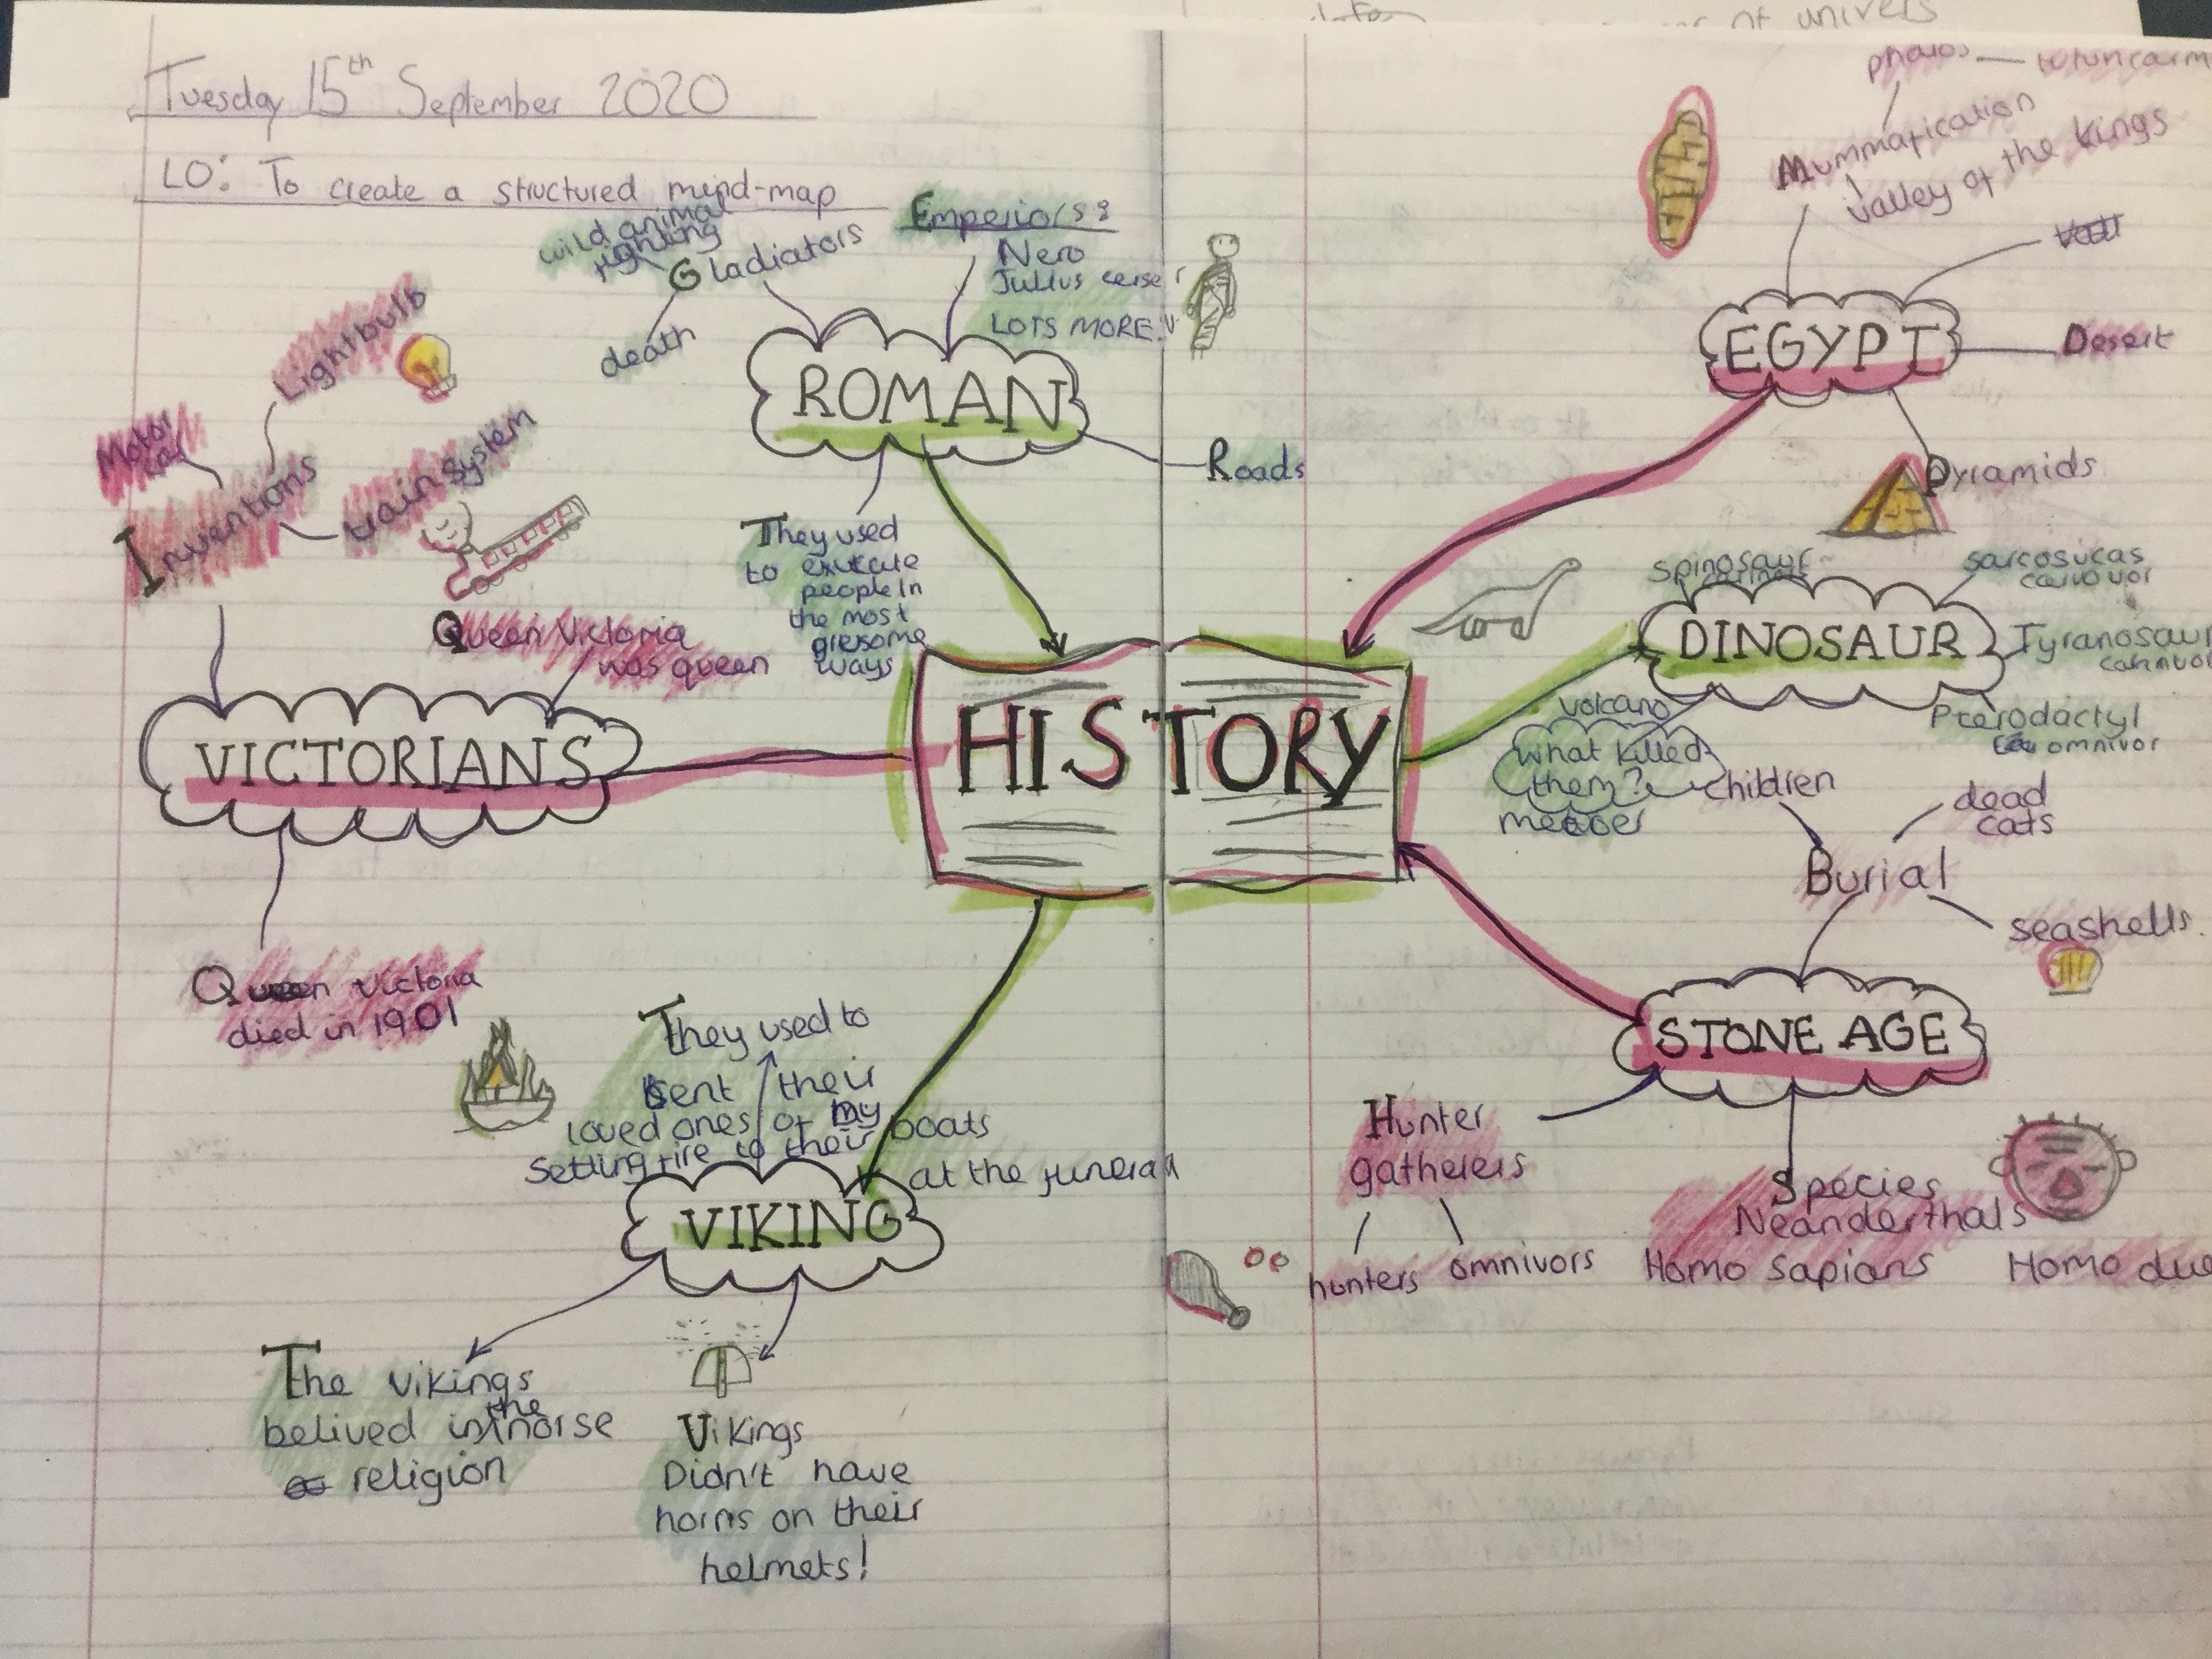 Tuesday 15th September 2020
LO: To create a structured mind-map
of univers
wild animal
fighting
Gladiators
death
Emperiors:
Nero
Julius cerser
LOTS MORE!
ROMAN
Roads
They used
to
people In
the most
giresome
ways
Lightbulb
Motor
car
Inventions
train system
Queen Victoria
was queen
VICTORIANS
Queen Victoria
died in 1901
HISTORY
phaios
Mummafication
valley of the kings
EGYPT
Desert
Pyramids
spinosaur
sarcosucas
DINOSAUR
Tyranosaur
Pterodactyl
omnivor
volcano
What killed
them?
meteoer
children
dead
cats
Burial
seashells.
STONE AGE
Hunter
gatherers
hunters
omnivors
Species
Neanderthals
Homo Sapians
Homo due
They used to
sent their
loved ones of by
Setting fire to their boats
at the funeral
VIKING
The vikings
belived in the norse
religion
Vikings
Didn't have
horns on their
helmets!